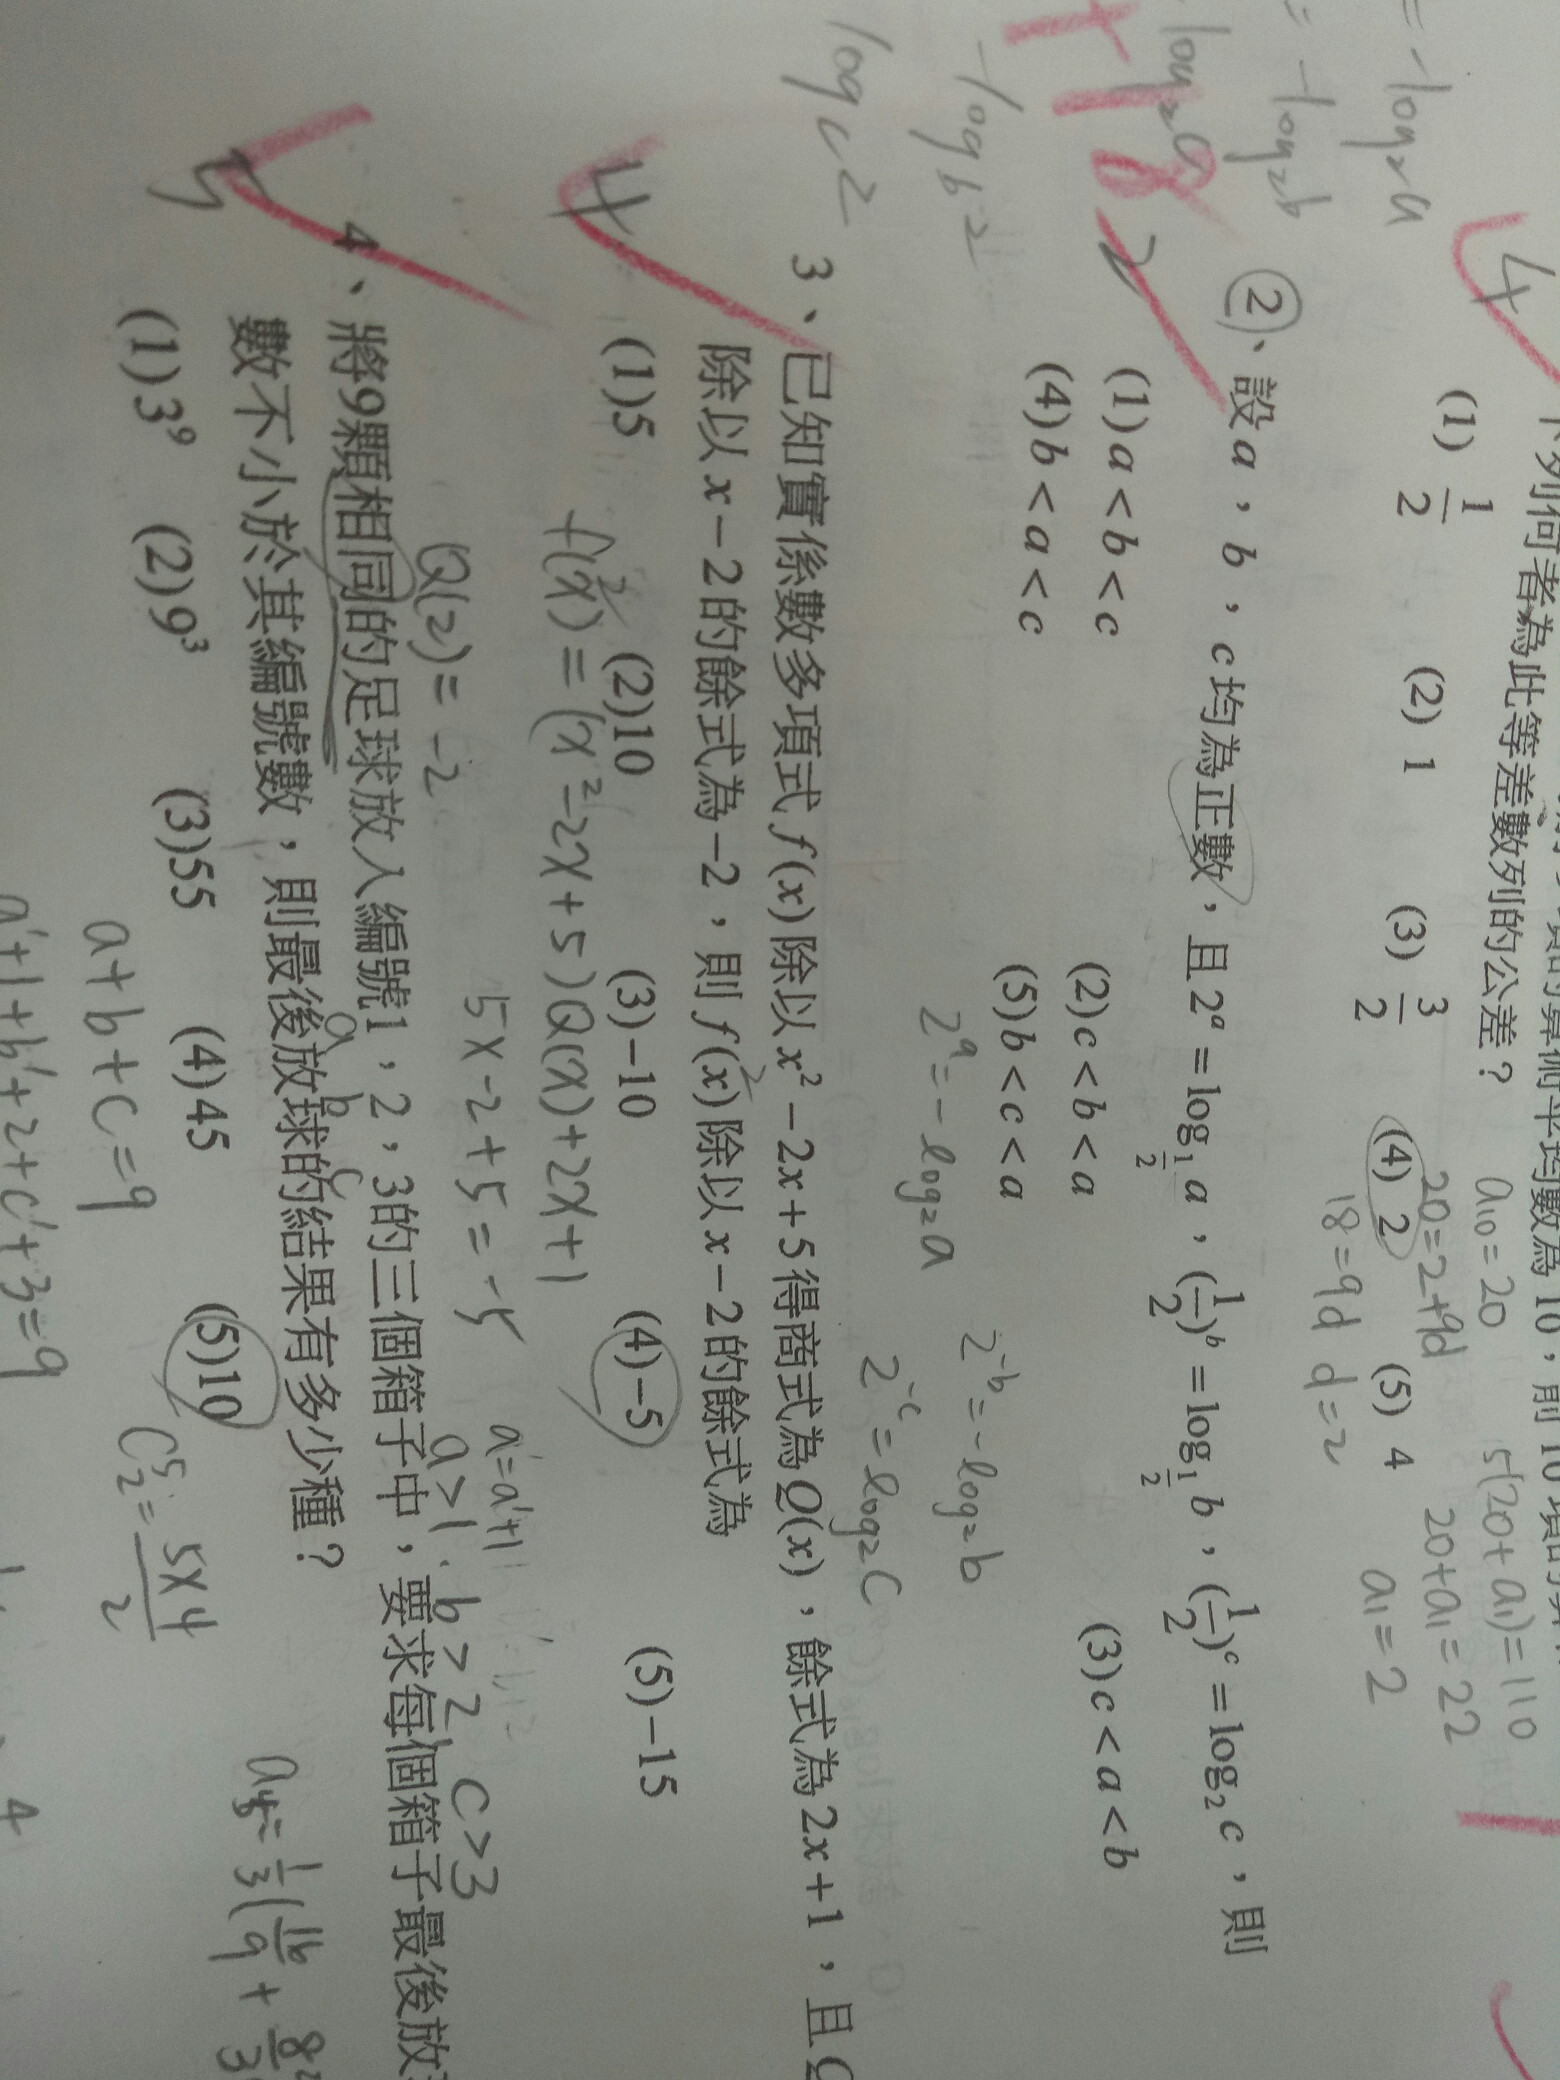 下列何者為此等差數列的公差？
(1) 1/2 (2) 1 (3) 3/2 (4) 2 (5) 4
a₁₀=20
20=2+9d
18=9d d=2
5(20+a₁)=110
20+a₁=22
a₁=2
4
=-log₂a
=-log₂b
log₂a
-log b 2
log c 2
2
②、設a，b，c均為正數，且2ᵃ=log_{1/2}a，(1/2)ᵇ=log_{1/2}b，(1/2)ᶜ=log₂c，則
(1)a<b<c (2)c<b<a (3)c<a<b
(4)b<a<c (5)b<c<a
2ᵃ=-log₂a
2⁻ᵇ=-log₂b
2⁻ᶜ=log₂c
4
3、已知實係數多項式f(x)除以x²-2x+5得商式為Q(x)，餘式為2x+1，且
除以x-2的餘式為-2，則f(x)除以x-2的餘式為
(1)5 (2)10 (3)-10 (4)-5 (5)-15
f(x)=(x²-2x+5)Q(x)+2x+1
Q(2)=-2
5x-2+5=-5
a=a'+1
a>1. b>2 c>3
5
4、將9顆相同的足球放入編號1，2，3的三個箱子中，要求每個箱子最後放
數不小於其編號數，則最後放球的結果有多少種？
a b c
(1)3⁹ (2)9³ (3)55 (4)45 (5)10
C⁵₂=5×4/2
a+b+c=9
a'+1+b'+2+c'+3=9